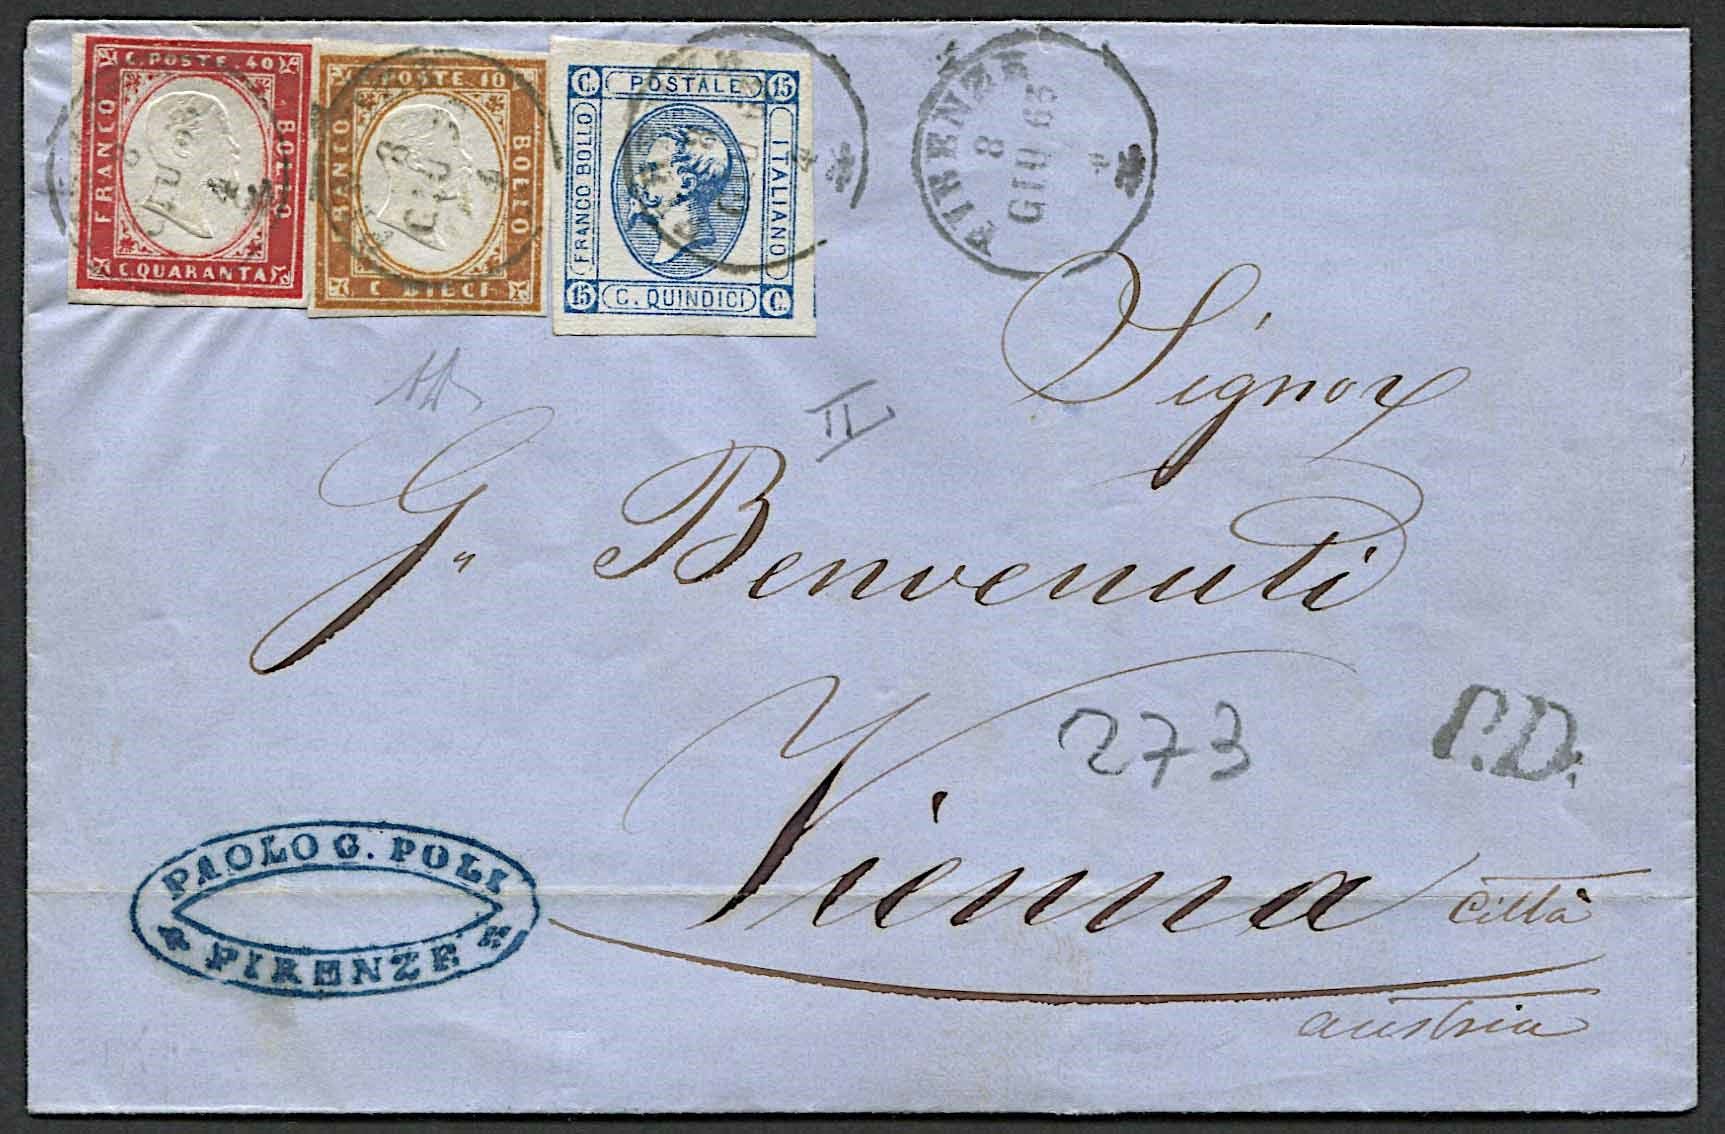 C. POSTE. 40
FRANCO
BOLLO
C. QUARANTA
C. POSTE. 10
FRANCO
BOLLO
C. DIECI
C. POSTALE 15
FRANCO BOLLO
ITALIANO
15 C. QUINDICI C.
FIRENZE
8
GIU 63
4
Signor
II
G. Benvenuti
273
P.D.
Vienna Città
austria
PAOLO G. POLI
FIRENZE